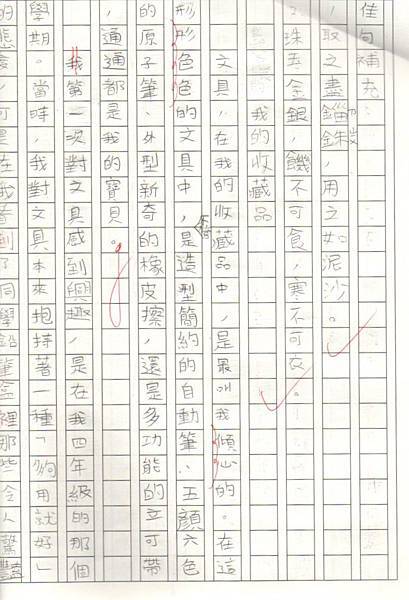 佳句補充:
取之盡錙銖,用之如泥沙。
珠玉金銀,饑不可食,寒不可衣。
我的收藏品
文具,在我的收藏品中,是最令我傾心的。在這
形形色色的文具中,是造型簡約的自動筆、五顏六色
的原子筆、外型新奇的橡皮擦,還是多功能的立可帶
,通通都是我的寶貝。
我第一次對文具感到興趣,是在我四年級的那個
學期。當時,我對文具本來抱持著一種「夠用就好」
的態度,可是在我看到了同學鉛筆盒裡那些令人驚豔